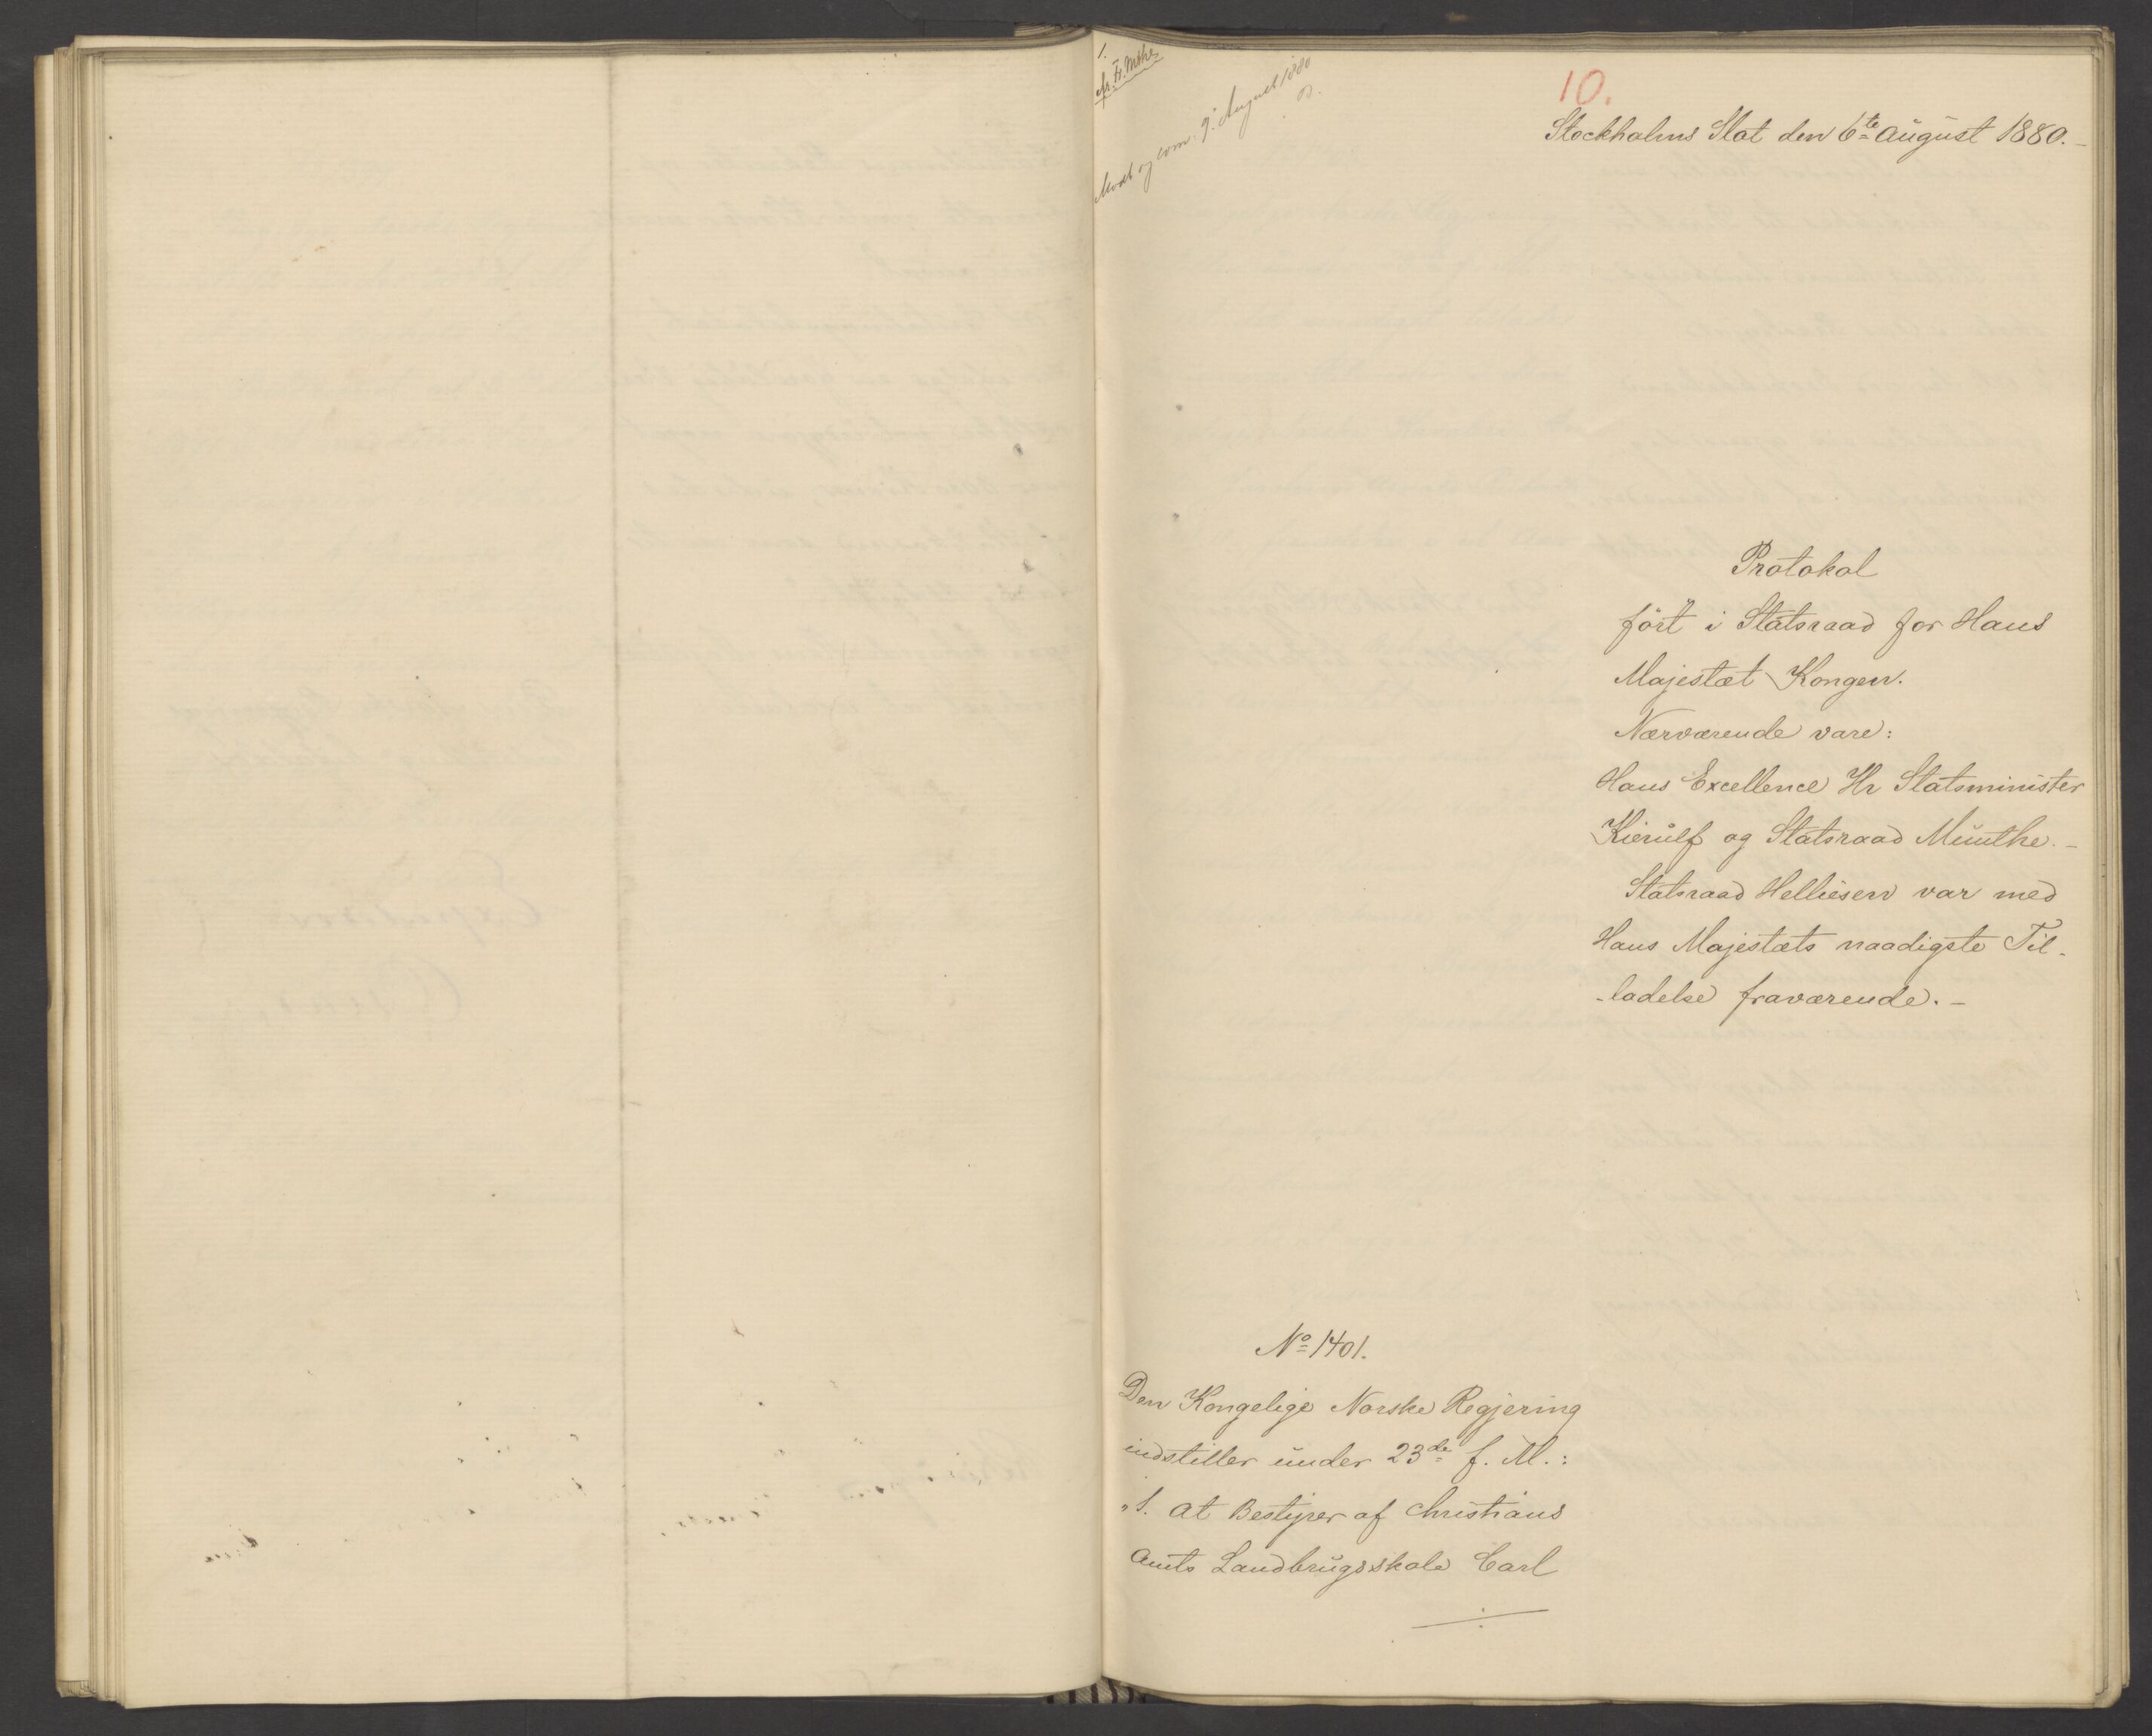 1.
Modt og com. 9. August 1880
10.
Stockholms Slot den 6te August 1880.-
Protokol
fört i Statsraad for Hans
Majestæt Kongen.
Nærværende vare:
Hans Excellence Hr Statsminister
Kierulf og Statsraad Munthe.-
Statsraad Helliesen var med
Hans Majestæts naadigste Til-
-ladelse fraværende.-
No 1401.
Den Kongelige Norske Regjering
indstiller under 23de f. M.:
"1. At Bestyrer af Christians
Amts Landbrugsskole Carl